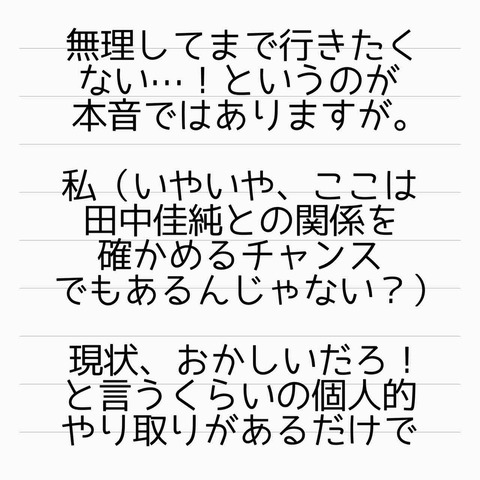 無理してまで行きたく
ない…！というのが
本音ではありますが。
私（いやいや、ここは
田中佳純との関係を
確かめるチャンス
でもあるんじゃない？）
現状、おかしいだろ！
と言うくらいの個人的
やり取りがあるだけで